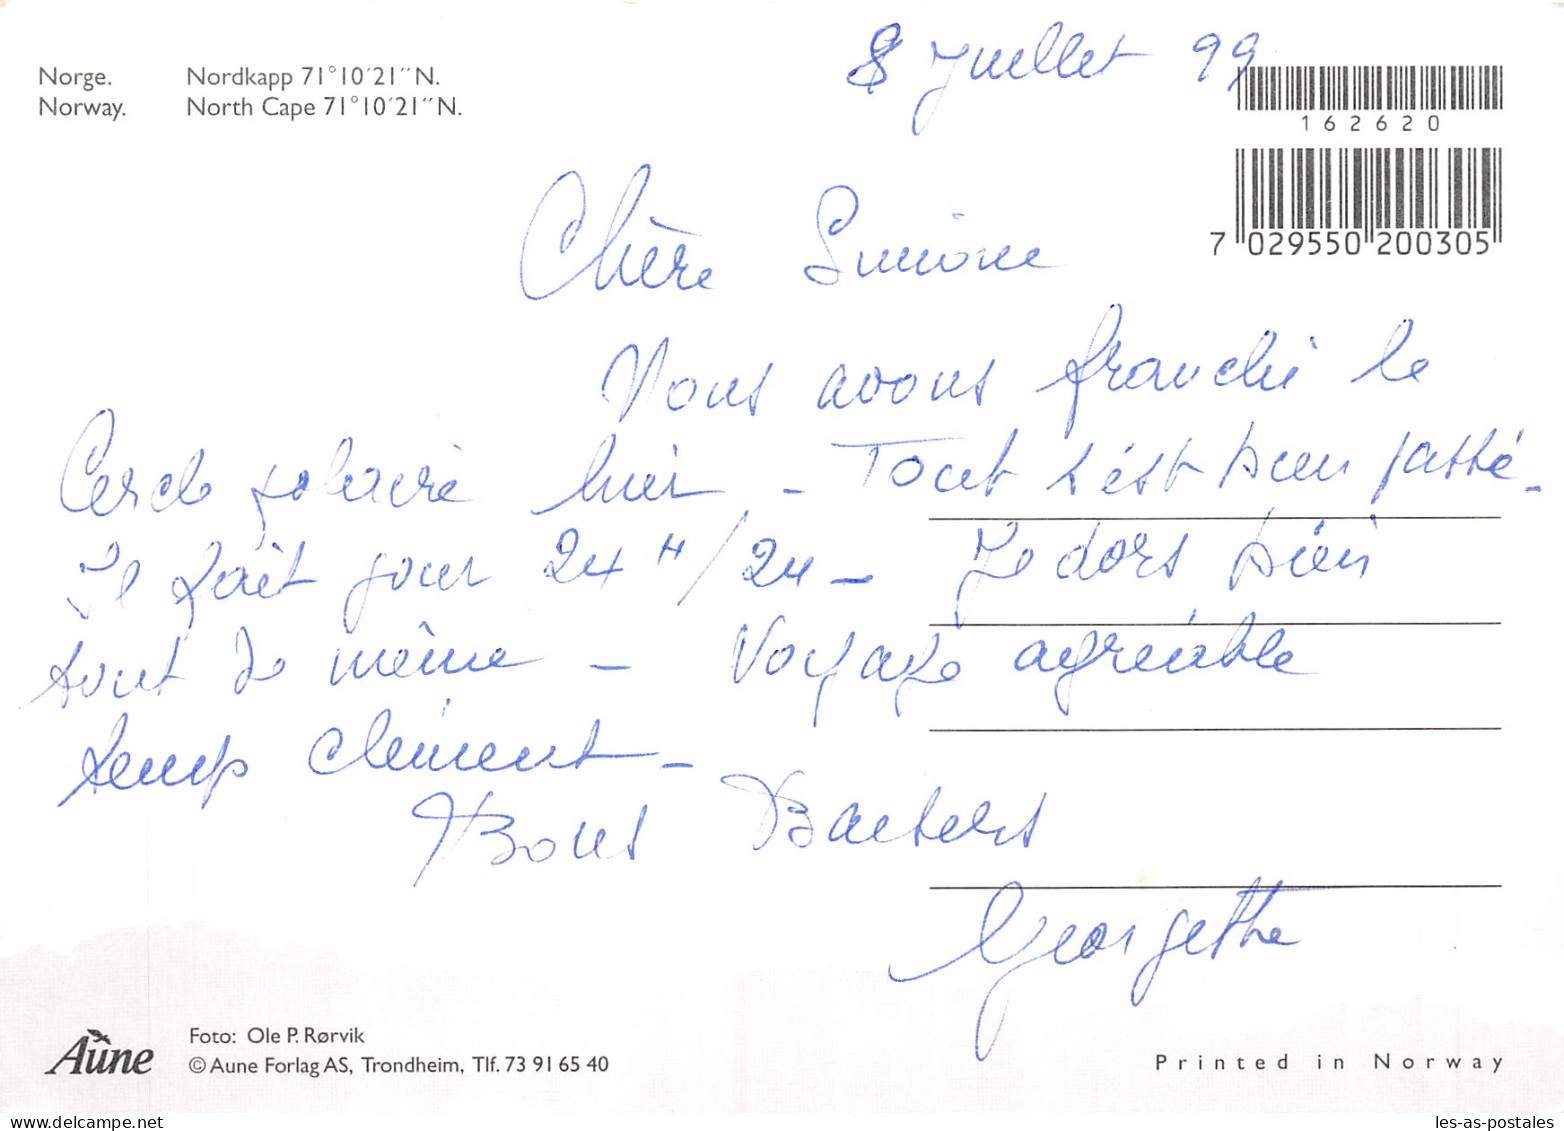 8 Juillet 99
Norge. Nordkapp 71°10′21″N.
Norway. North Cape 71°10′21″N.
162620
7 029550 200305
Chère Simone
Nous avons franchi le
Cercle polaire hier - Tout s'est bien passé -
Il fait jour 24 H/24 - Je dors bien
tout de même - Voyage agréable
temps clément -
Bons Baisers
Georgette
Aune
Foto: Ole P. Rørvik
© Aune Forlag AS, Trondheim, Tlf. 73 91 65 40
Printed in Norway
les-as-postales